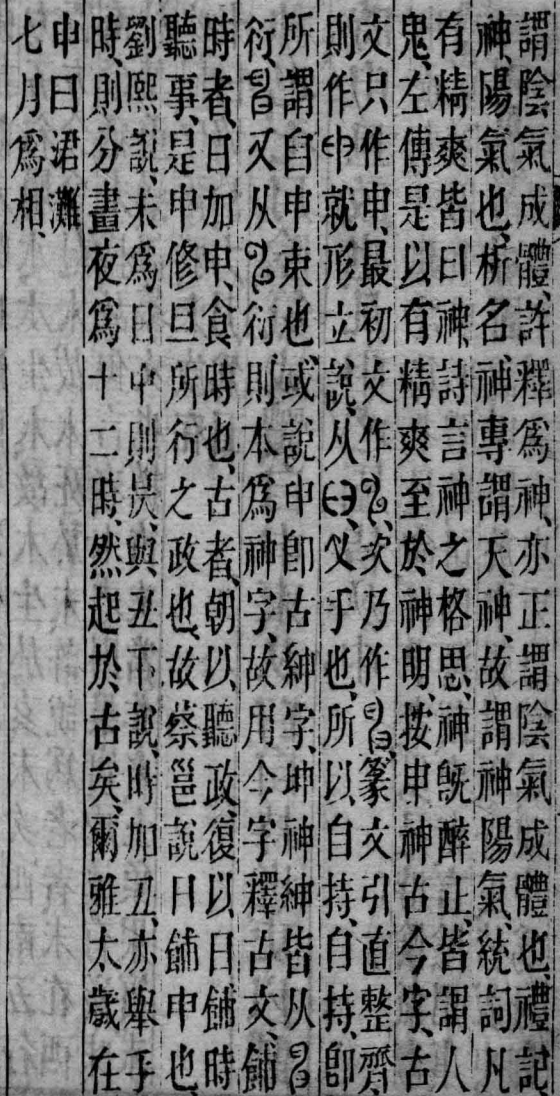 謂陰氣成體許釋爲神、亦正謂陰氣成體也、禮記、
神、陽氣也、析名、神專謂天神、故謂神陽氣、統詞凡
有精爽皆曰神、詩言神之格思、神既醉止、皆謂人
鬼、左傳是以有精爽至於神明、按申神古今字、古
文只作申、最初文作𢑚、次乃作𦥔、篆文引直整齊、
則作申就形立說、从臼、乂手也、所以自持、自持、卽
所謂自申束也、或說申卽古紳字、坤神紳皆从𦥔
衍、𦥔又从𢑚衍、則本爲神字、故用今字釋古文、餔
時者、日加申、食時也、古者、朝以聽政、復以日餔時
聽事、是申修旦所行之政也、故蔡邕說曰餔申也、
劉熙說、未爲日中則昃、與丑下說、時加丑、亦舉手
時、則分晝夜爲十二時、然起於古矣、爾雅太歲在
申曰涒灘
七月爲相、